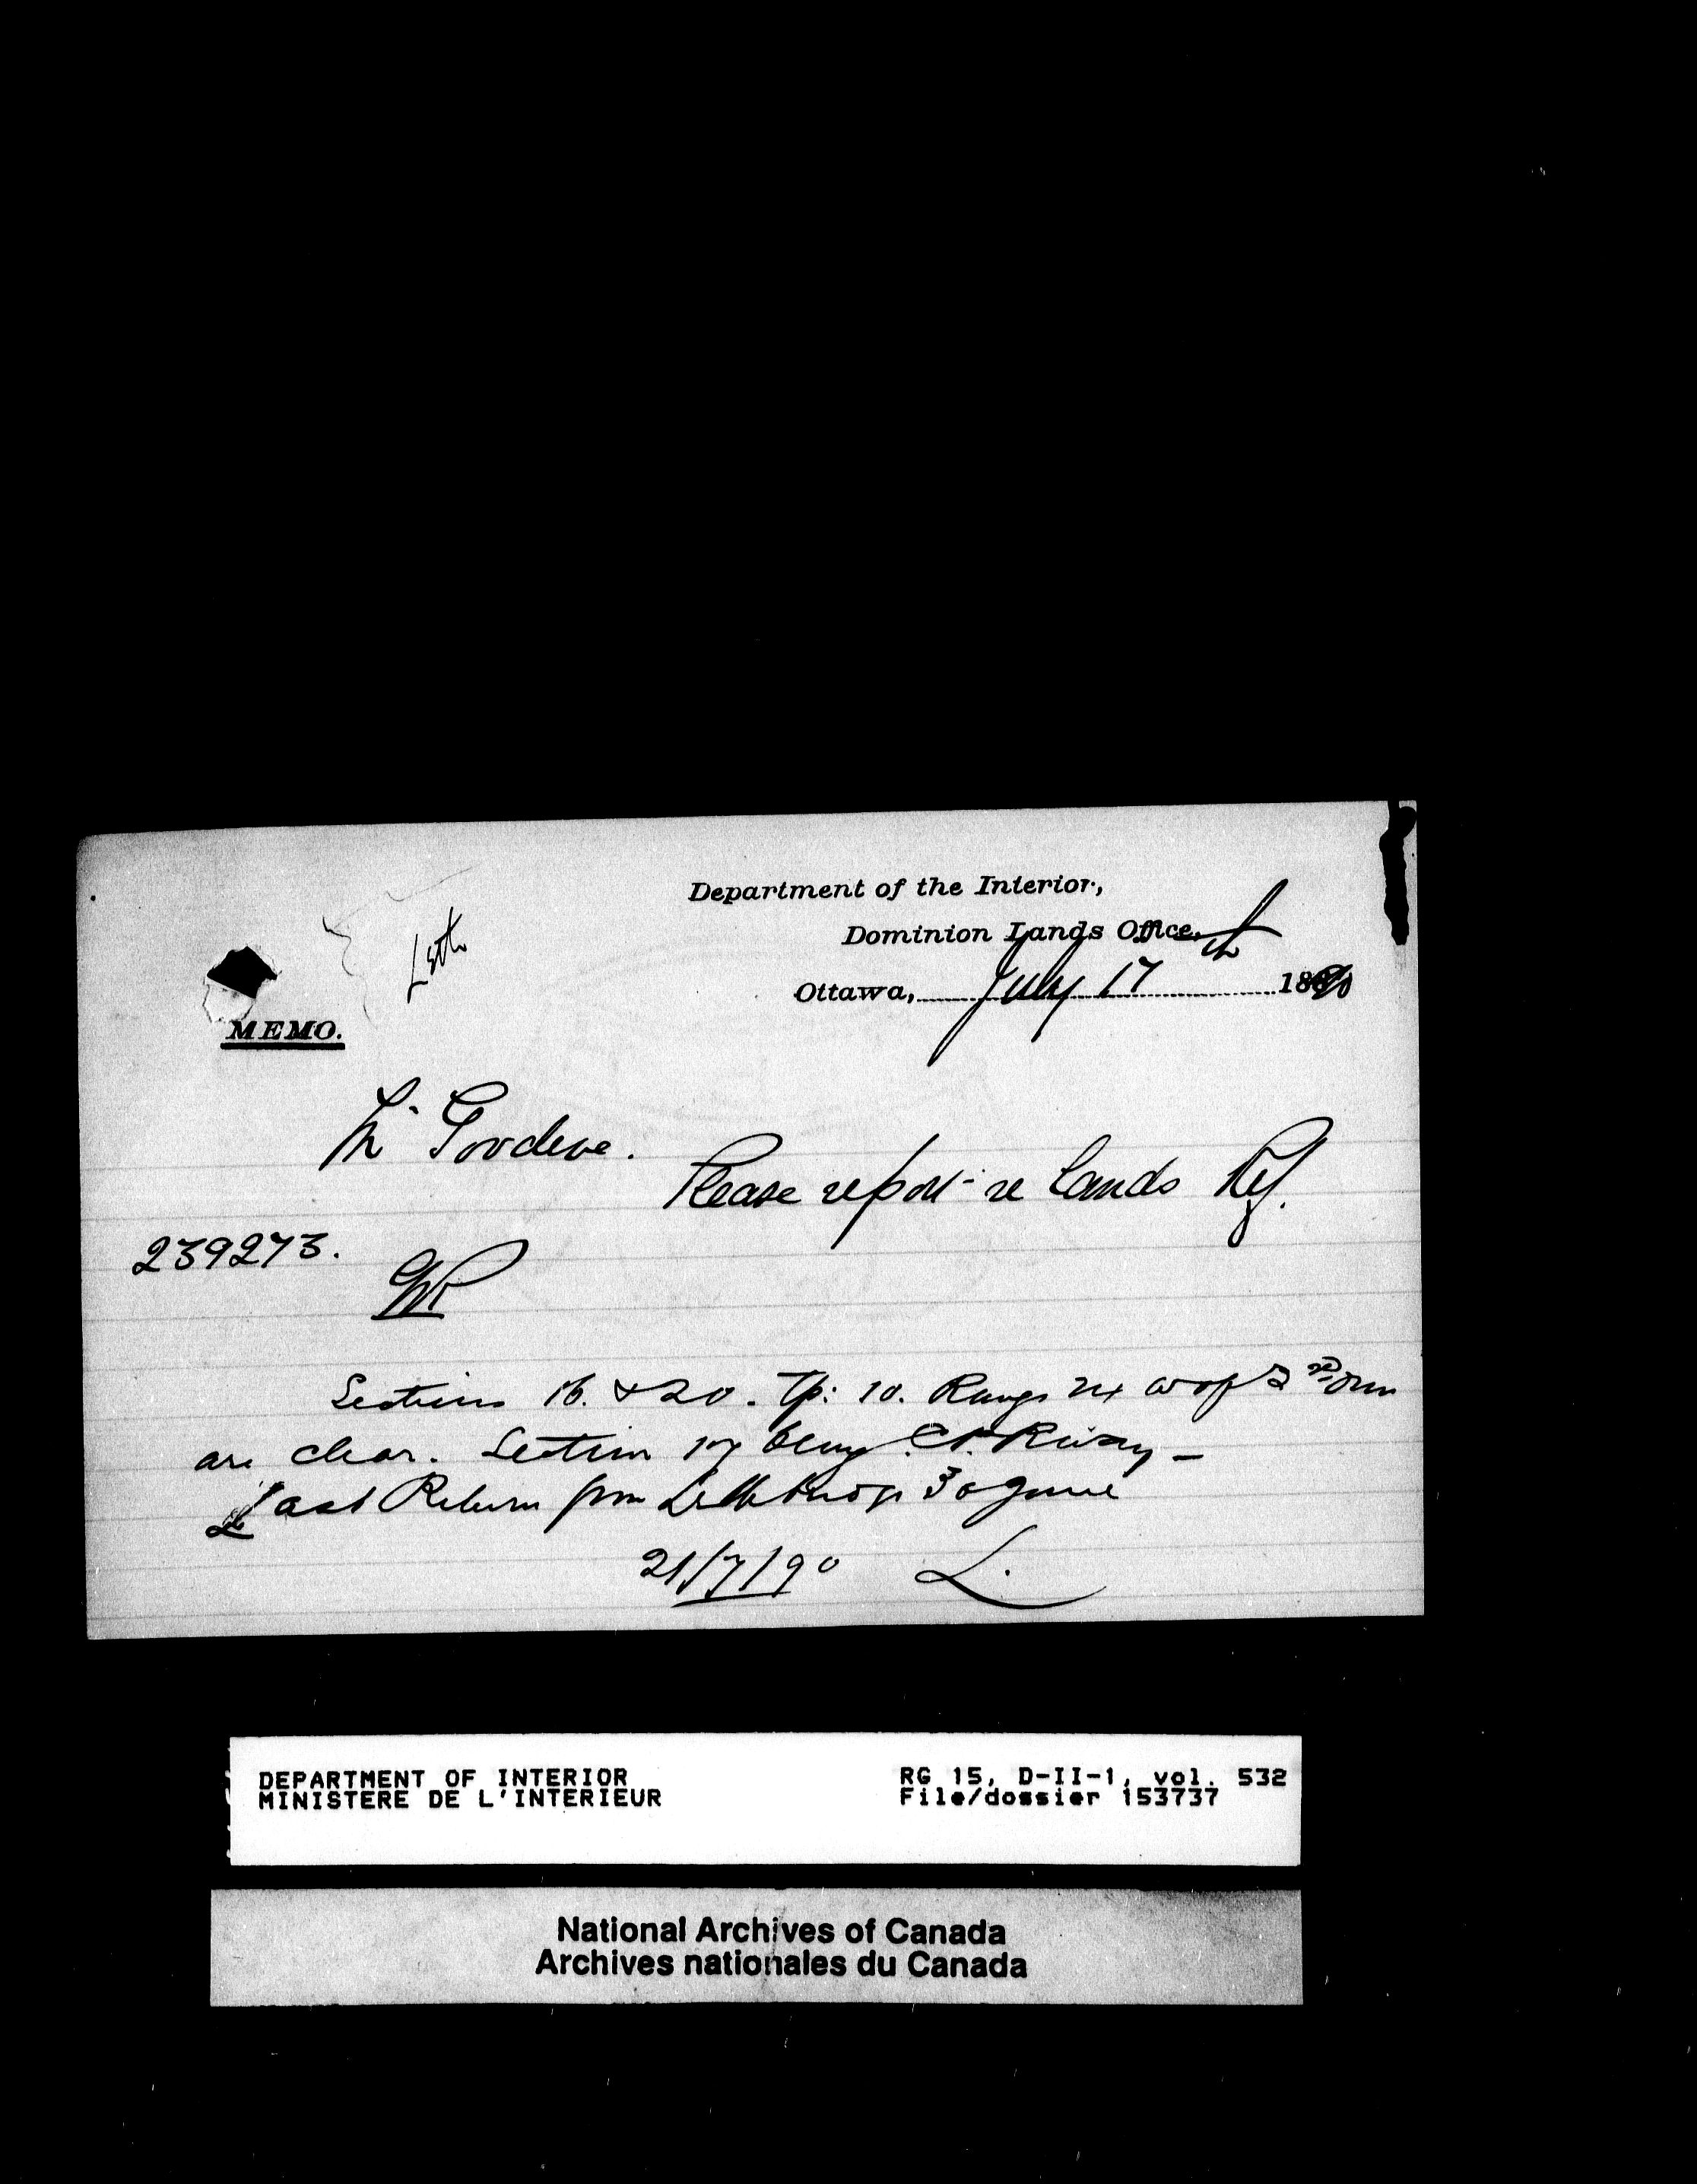 Department of the Interior,
Dominion Lands Office,
Ottawa, July 17th 1890
Leth
MEMO.
Mr Goodeve.
Please report re lands Ref.
239273.
Sections 16. & 20. Tp: 10. Range 24 W of
are clear. Section 17 being Ry
Last Return from Lethbridge 30 June
21/7/90 L.
DEPARTMENT OF INTERIOR
MINISTERE DE L'INTERIEUR
RG 15, D-II-1, vol. 532
File/dossier 153737
National Archives of Canada
Archives nationales du Canada